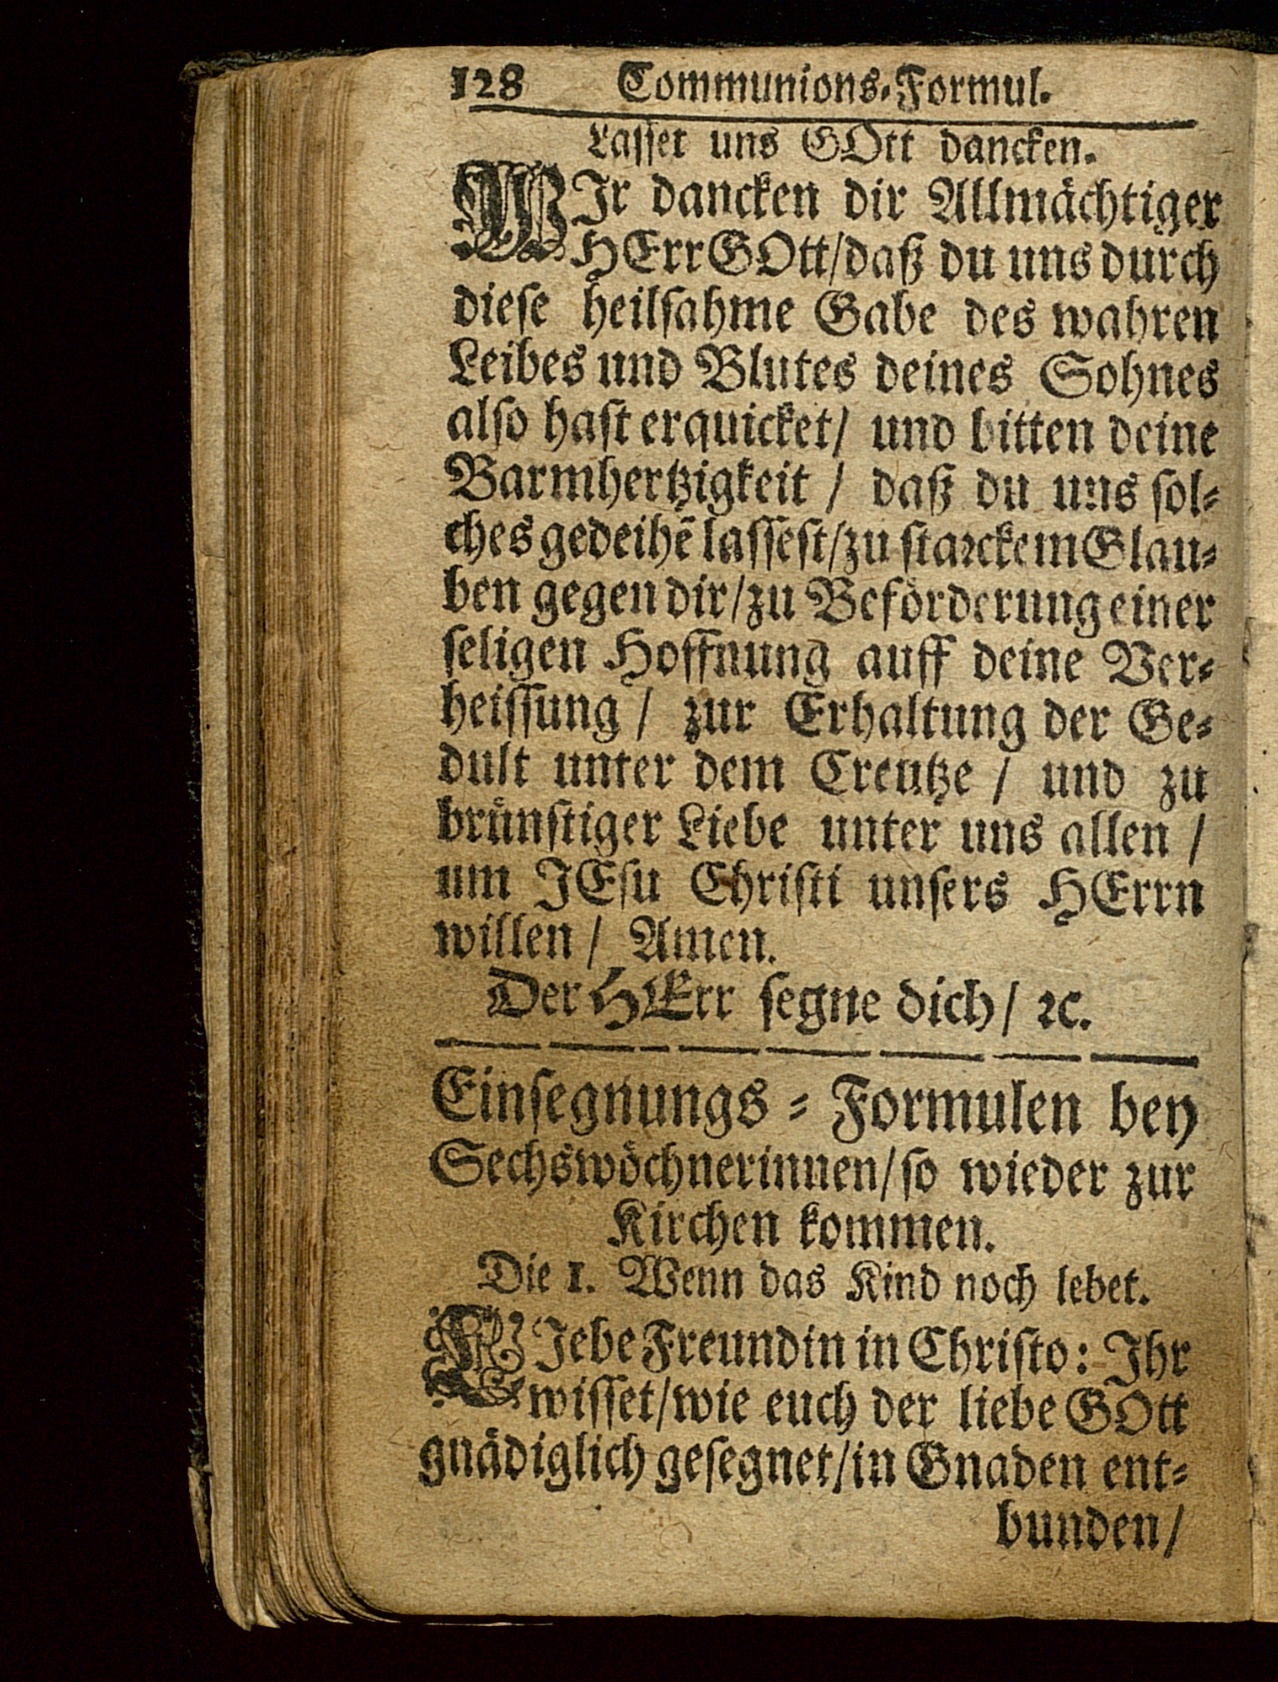 128 Communions-Formul.
Lasset uns GOtt dancken.
WIr dancken dir Allmächtiger
HErr GOtt/daß du uns durch
diese heilsahme Gabe des wahren
Leibes und Blutes deines Sohnes
also hast erquicket/ und bitten deine
Barmhertzigkeit / daß du uns sol-
ches gedeihẽ lassest/zu starckem Glau-
ben gegen dir/zu Beförderung einer
seligen Hoffnung auff deine Ver-
heissung / zur Erhaltung der Ge-
dult unter dem Creutze / und zu
brünstiger Liebe unter uns allen /
um JEsu Christi unsers HErrn
willen / Amen.
Der HErr segne dich/ ꝛc.
Einsegnungs-Formulen bey
Sechswöchnerinnen/so wieder zur
Kirchen kommen.
Die 1. Wenn das Kind noch lebet.
LJebe Freundin in Christo: Ihr
wisset/wie euch der liebe GOtt
gnädiglich gesegnet/in Gnaden ent-
bunden/